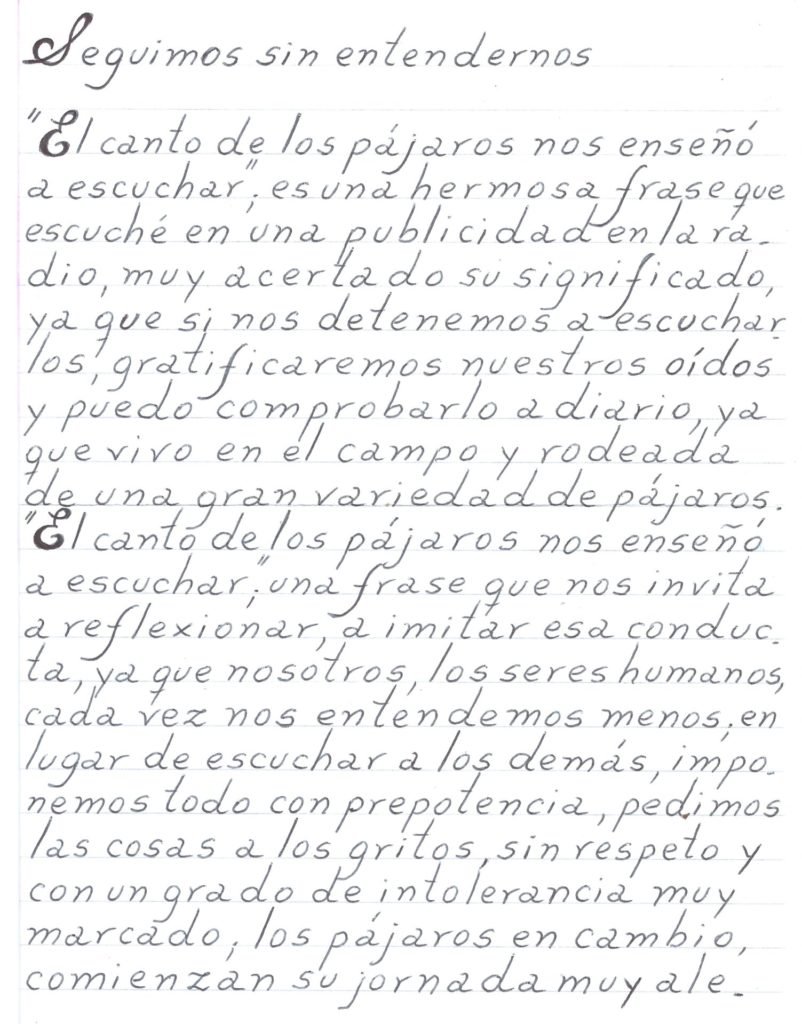 Seguimos sin entendernos
"El canto de los pájaros nos enseñó
a escuchar"; es una hermosa frase que
escuché en una publicidad en la ra-
dio, muy acertado su significado,
ya que si nos detenemos a escuchar
los, gratificaremos nuestros oídos
y puedo comprobarlo a diario, ya
que vivo en el campo y rodeada
de una gran variedad de pájaros.
"El canto de los pájaros nos enseñó
a escuchar"; una frase que nos invita
a reflexionar, a imitar esa conduc-
ta, ya que nosotros, los seres humanos,
cada vez nos entendemos menos; en
lugar de escuchar a los demás, impo-
nemos todo con prepotencia, pedimos
las cosas a los gritos, sin respeto y
con un grado de intolerancia muy
marcado; los pájaros en cambio,
comienzan su jornada muy ale-